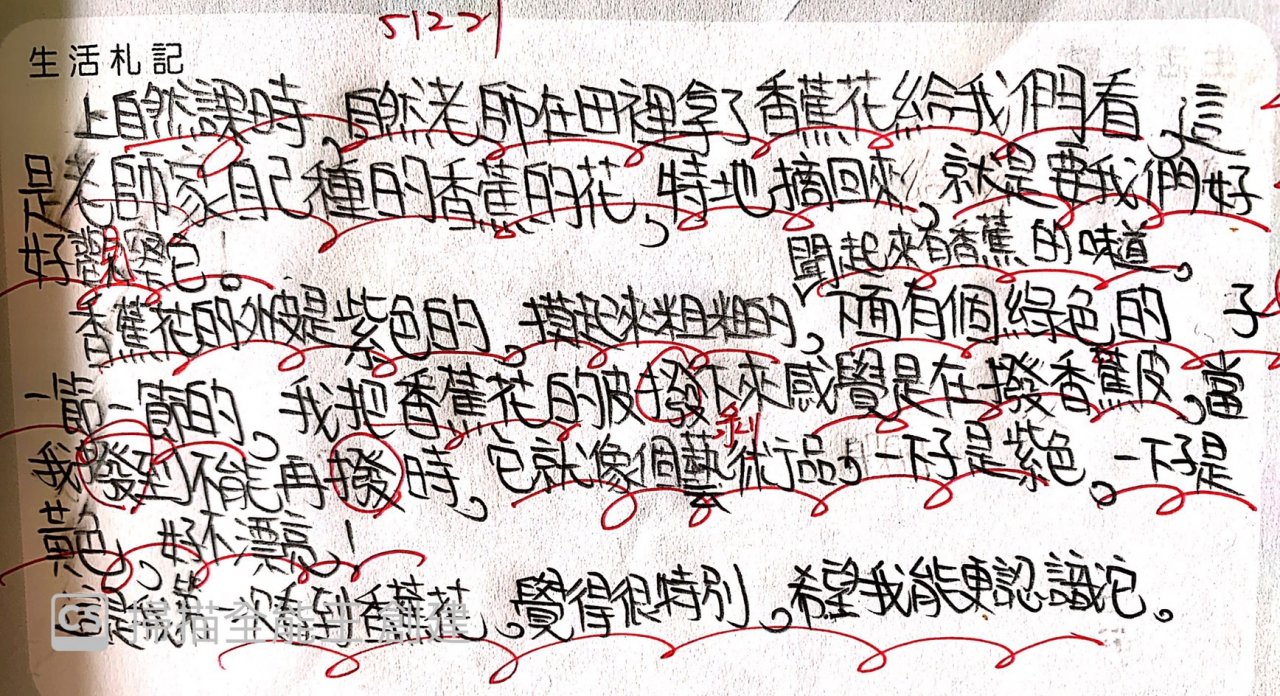 51221
生活札記
上自然課時,自然老師在田裡拿了香蕉花給我們看,這
是老師家自己種的香蕉的花,特地摘回來,就是要我們好
好觀察它!。
聞起來有香蕉的味道。
香蕉花的外皮是紫色的,摸起來粗粗的,下面有個綠色的 子
一節一節的,我把香蕉花的皮撥下來感覺是在撥香蕉皮,當
剝
我撥到不能再撥時,它就像個藝術品,一下子是紫色,一下子是
黃色,好不漂亮!
這是我第一次看到香蕉花,覺得很特別,希望我能更認識它。
CS 掃描全能王 創建